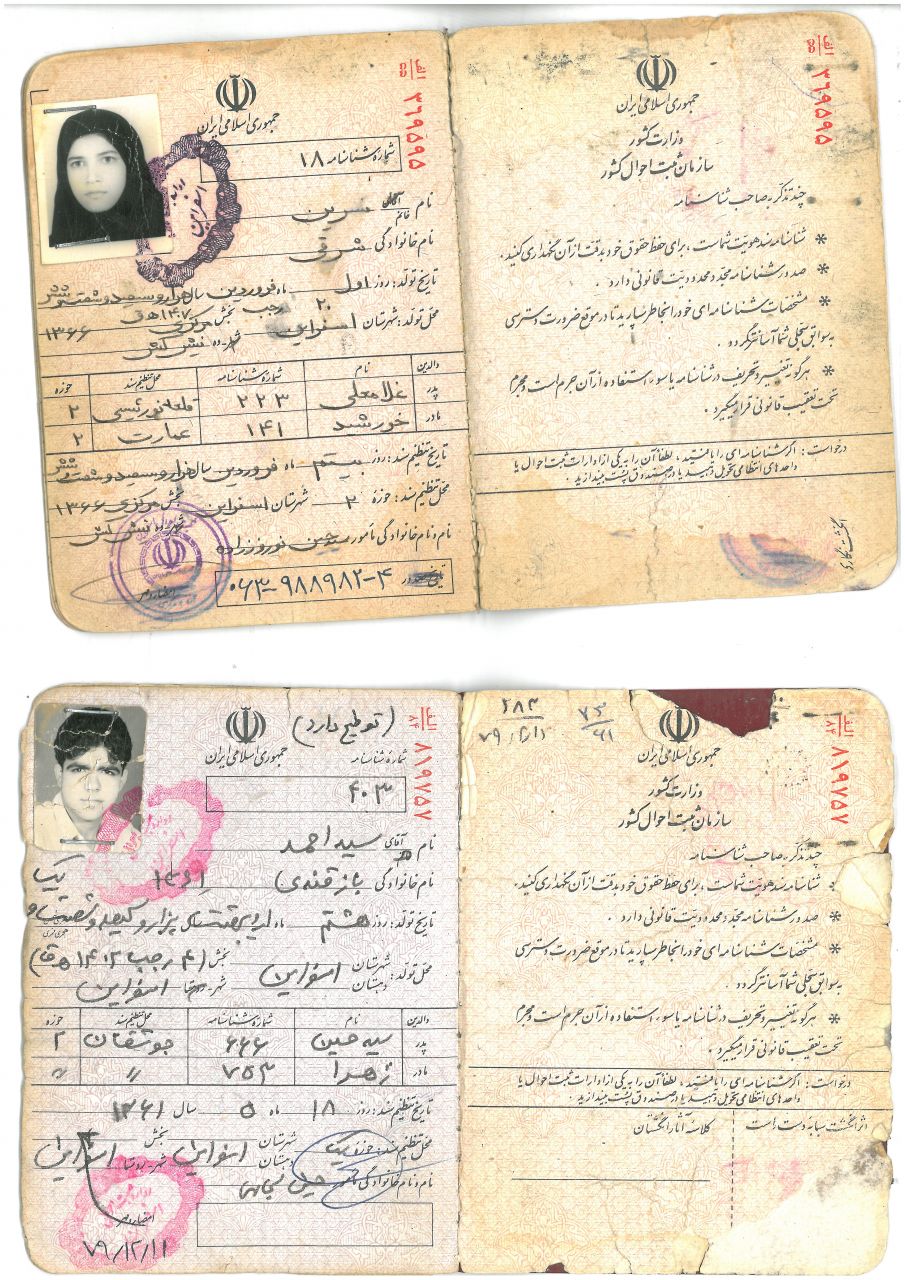 الف
۵۵ ۳۶۹۵۹۵
جمهوری اسلامی ایران
وزارت کشور
سازمان ثبت احوال کشور
چند تذکر به صاحب شناسنامه
* شناسنامه سند هویت شماست ، برای حفظ حقوق خود بدقت از آن نگهداری کنید.
* صدور شناسنامه مجدد محدودیت قانونی دارد .
* مشخصات شناسنامه ای خود را بخاطر بسپارید تا در موقع ضرورت دسترسی
به سوابق سجلی شما آسانتر گردد .
* هرگونه تغییر و تحریف در شناسنامه یا سوء استفاده از آن جرم است و مجرم
تحت تعقیب قانونی قرار میگیرد .
درخواست : اگر شناسنامه ای را یافتید ، لطفاً آن را به یکی از ادارات ثبت احوال یا
واحدهای انتظامی تحویل دهید یا در صندوق پست بیندازید .
انگشت نگاری
الف
۵۵ ۳۶۹۵۹۵
جمهوری اسلامی ایران
شماره شناسنامه ۱۸
نام آقای خانم نسرین
نام خانوادگی شرقی
تاریخ تولد : روز اول ماه فروردین سال هزار و سیصد و شصت و شش
۲۰ رجب ۱۴۰۷ ه ق
محل تولد : شهرستان اسفراین بخش مرکزی ۱۳۶۶
شهر ده
والدین نام شماره شناسنامه محل تنظیم سند حوزه
پدر غلامعلی ۲۲۳ ۲
مادر خورشید ۱۴۱ عمارت ۲
تاریخ تنظیم سند : روز بیستم ماه فروردین سال هزار و سیصد و شصت و شش
محل تنظیم سند : حوزه ۲ شهرستان اسفراین بخش مرکزی ۱۳۶۶
شهر ده
نام و نام خانوادگی مأمور حسین نوروززاده
۰۶۳-۹۸۸۹۸۲-۴
امضاء و مهر
الف
۸۴ ۸۱۹۷۵۷
جمهوری اسلامی ایران
وزارت کشور
سازمان ثبت احوال کشور
چند تذکر به صاحب شناسنامه
* شناسنامه سند هویت شماست ، برای حفظ حقوق خود بدقت از آن نگهداری کنید.
* صدور شناسنامه مجدد محدودیت قانونی دارد .
* مشخصات شناسنامه ای خود را بخاطر بسپارید تا در موقع ضرورت دسترسی
به سوابق سجلی شما آسانتر گردد .
* هرگونه تغییر و تحریف در شناسنامه یا سوء استفاده از آن جرم است و مجرم
تحت تعقیب قانونی قرار میگیرد .
درخواست : اگر شناسنامه ای را یافتید ، لطفاً آن را به یکی از ادارات ثبت احوال یا
واحدهای انتظامی تحویل دهید یا در صندوق پست بیندازید .
اثر انگشت سبابه دست است کلاسه آثار انگشتان
الف
۸۴ ۸۱۹۷۵۷
(توضیح دارد)
جمهوری اسلامی ایران
شماره شناسنامه
۴۰۳
نام آقای سید احمد
نام خانوادگی بازقندی ۱۳۶۱ یک
تاریخ تولد : روز هشتم ماه اردیبهشت سال هزار و سیصد و شصت و
محل تولد : شهرستان دهستان اسفراین بخش (۴ رجب ۱۴۰۲ ه ق)
شهر اسفراین
والدین نام شماره شناسنامه محل تنظیم سند حوزه
پدر سید حسین ۶۶۶ جوشقان ۲
مادر زهرا ۷۵۳ " "
تاریخ تنظیم سند : روز ۱۸ ماه ۵ سال ۱۳۶۱
محل تنظیم سند : حوزه یک شهرستان دهستان اسفراین بخش شهر - روستا اسفراین
نام و نام خانوادگی مأمور حسین
امضاء و مهر
۷۹/۱۲/۱۱